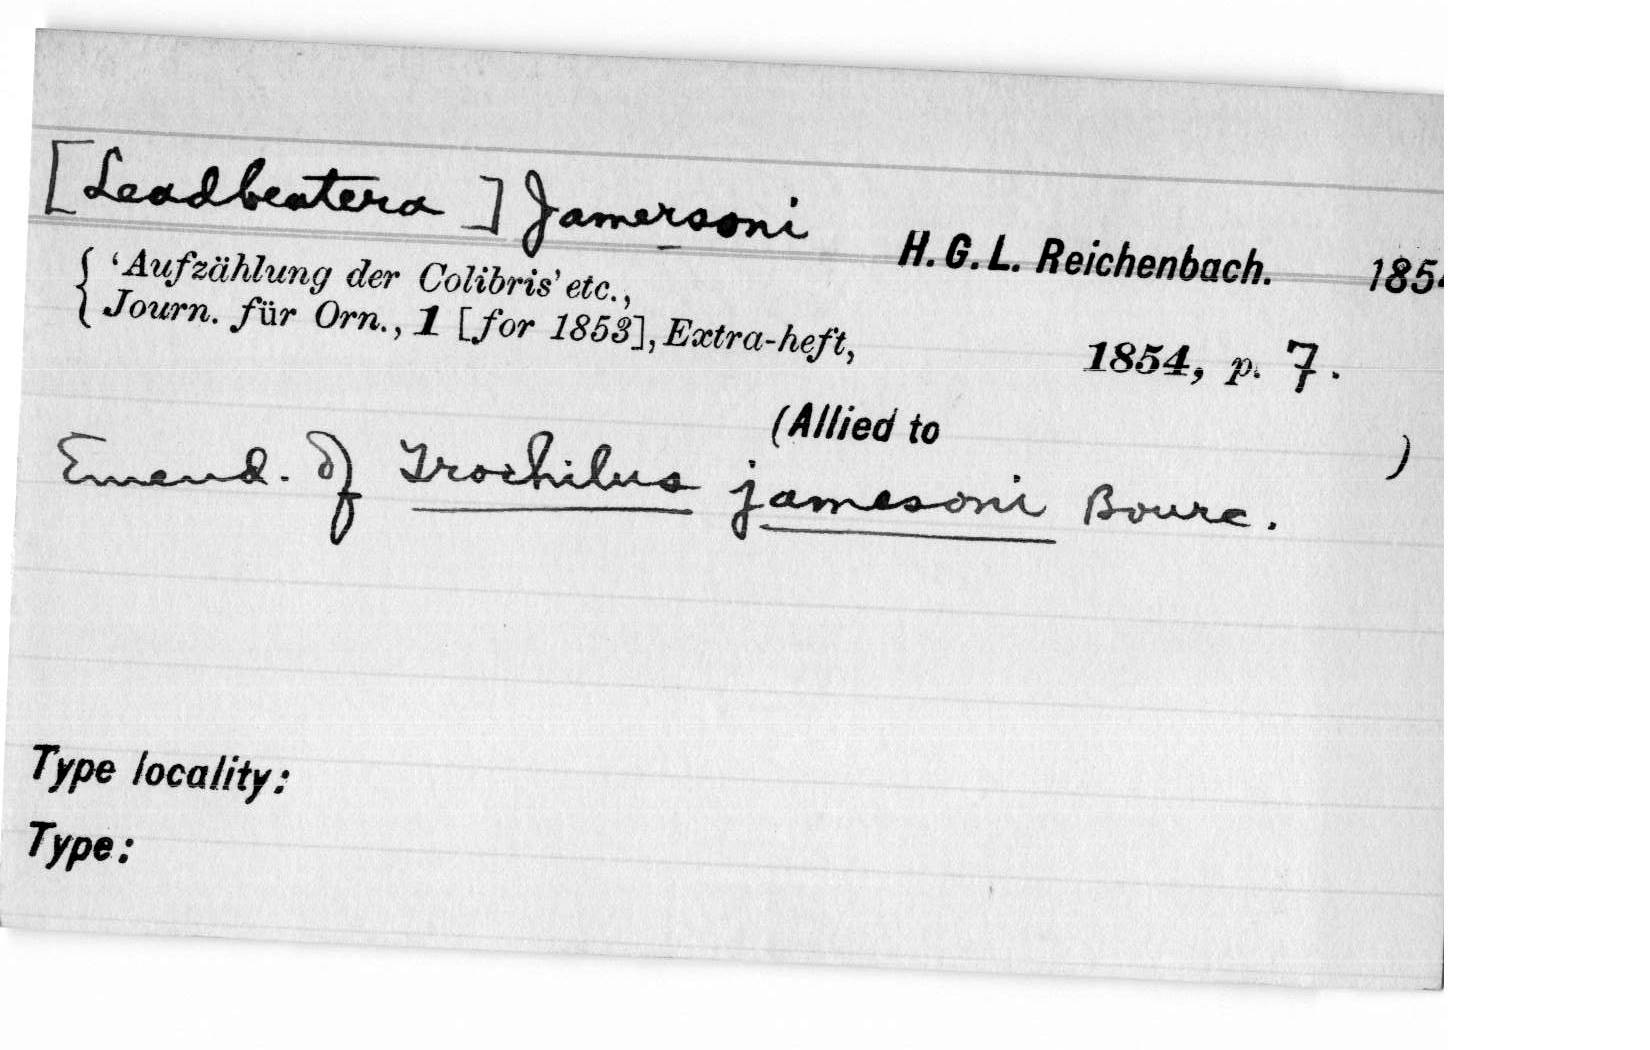 [Leadbeatera] Jamersoni H. G. L. Reichenbach. 1854
{ 'Aufzählung der Colibris' etc.,
Journ. für Orn., 1 [for 1853], Extra-heft, 1854, p. 7.
(Allied to )
Emend. of Trochilus jamesoni Bourc.
Type locality:
Type: